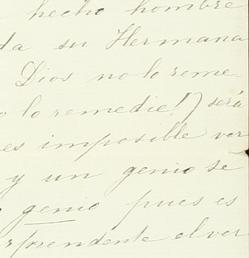 hecho hombre
da su Hermana
Dios no lo reme
o lo remedie!) será
es imposible ver
y un genio se
genio pues es
rprendente el ver